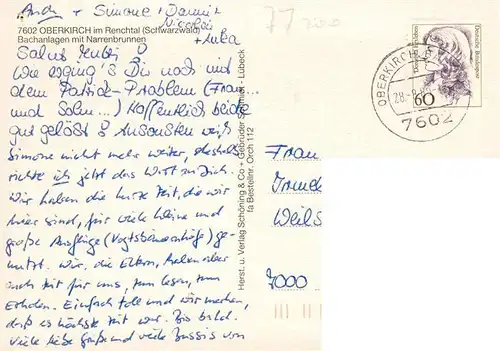 Andi + Simone + Daniel
Nicolai
+ Luka
7602 OBERKIRCH im Renchtal (Schwarzwald)
Bachanlagen mit Narrenbrunnen
Salut
Wie erging's Dir noch mit
dem Patrick-Problem (Frau...
und Sohn...) Hoffentlich beide
gut gelöst? Ansonsten weiß
Simone nicht mehr weiter, deshalb
richte ich jetzt das Wort an Dich.
Wir haben die kurze Zeit, die wir
hier sind, für viele kleine und
große Ausflüge (Vogtsbauernhöfe) ge-
nutzt. Wir, die Eltern, haben aber
auch Zeit für uns, zum lesen, zum
Erholen. Einfach toll und wir merken,
daß es höchste Zeit war. Bis bald.
Viele liebe Grüße und viele Bussis von
Herst. u. Verlag Schöning & Co + Gebrüder Schmidt · Lübeck
Bestellnr. Orch 112
77
Deutsche Bundespost
60
OBERKIRCH
28.
7602
Frau
Weils
7000